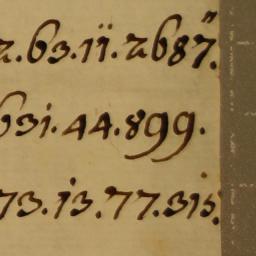 2.63.11.2687.
631.44.899.
73.13.77.315.